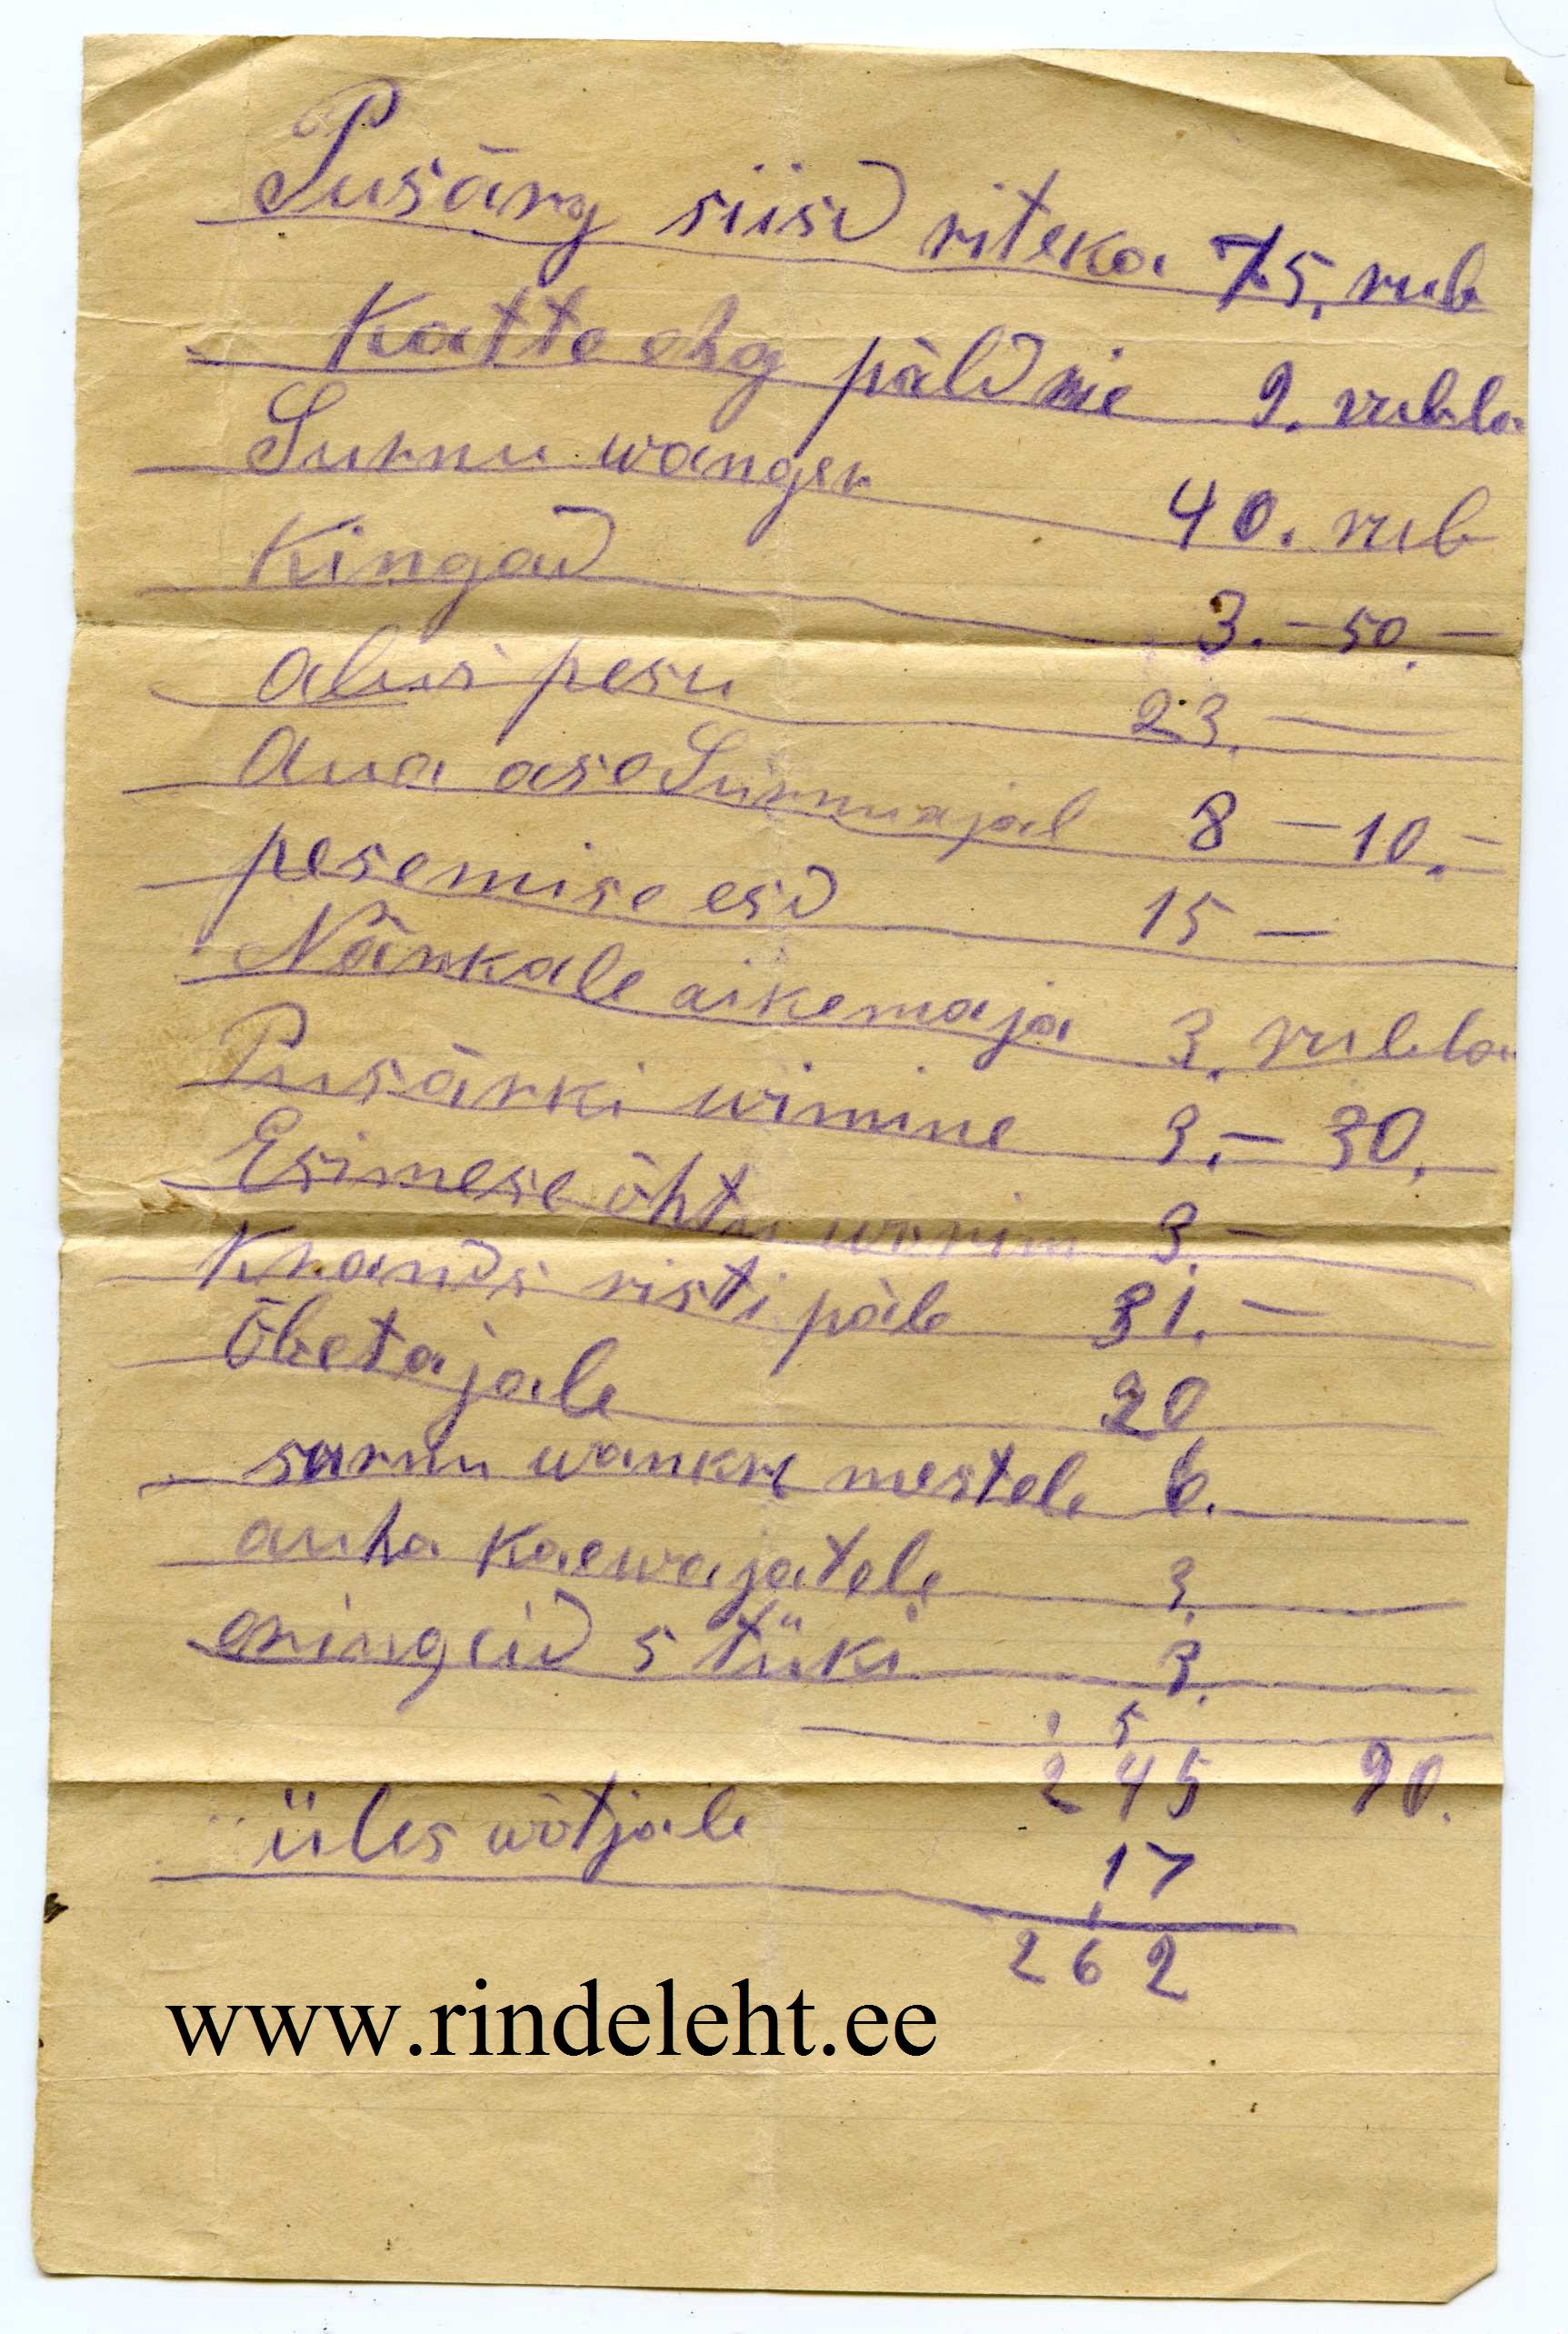 Pusärg siisd riteka 75. rub
Katte ehg päld nie 9. rubla
Surnu wanger 40. rub
Kingad 3. — 50. —
alus pesu 23. —
Aua ase Surnuajal 8 — 10. —
pesemise esd 15 —
Närkale aikemaja 3. rubla
Pusärki wimine 3. — 30.
Esimese õhtu 3. —
Krands risti päle 31. —
Õbetajale 20
surnu wankre mestele 6.
auha kaewajatele 3.
eringeid 5 tüki 3.
5
245 90.
üles wõtjale 17
262
www.rindeleht.ee